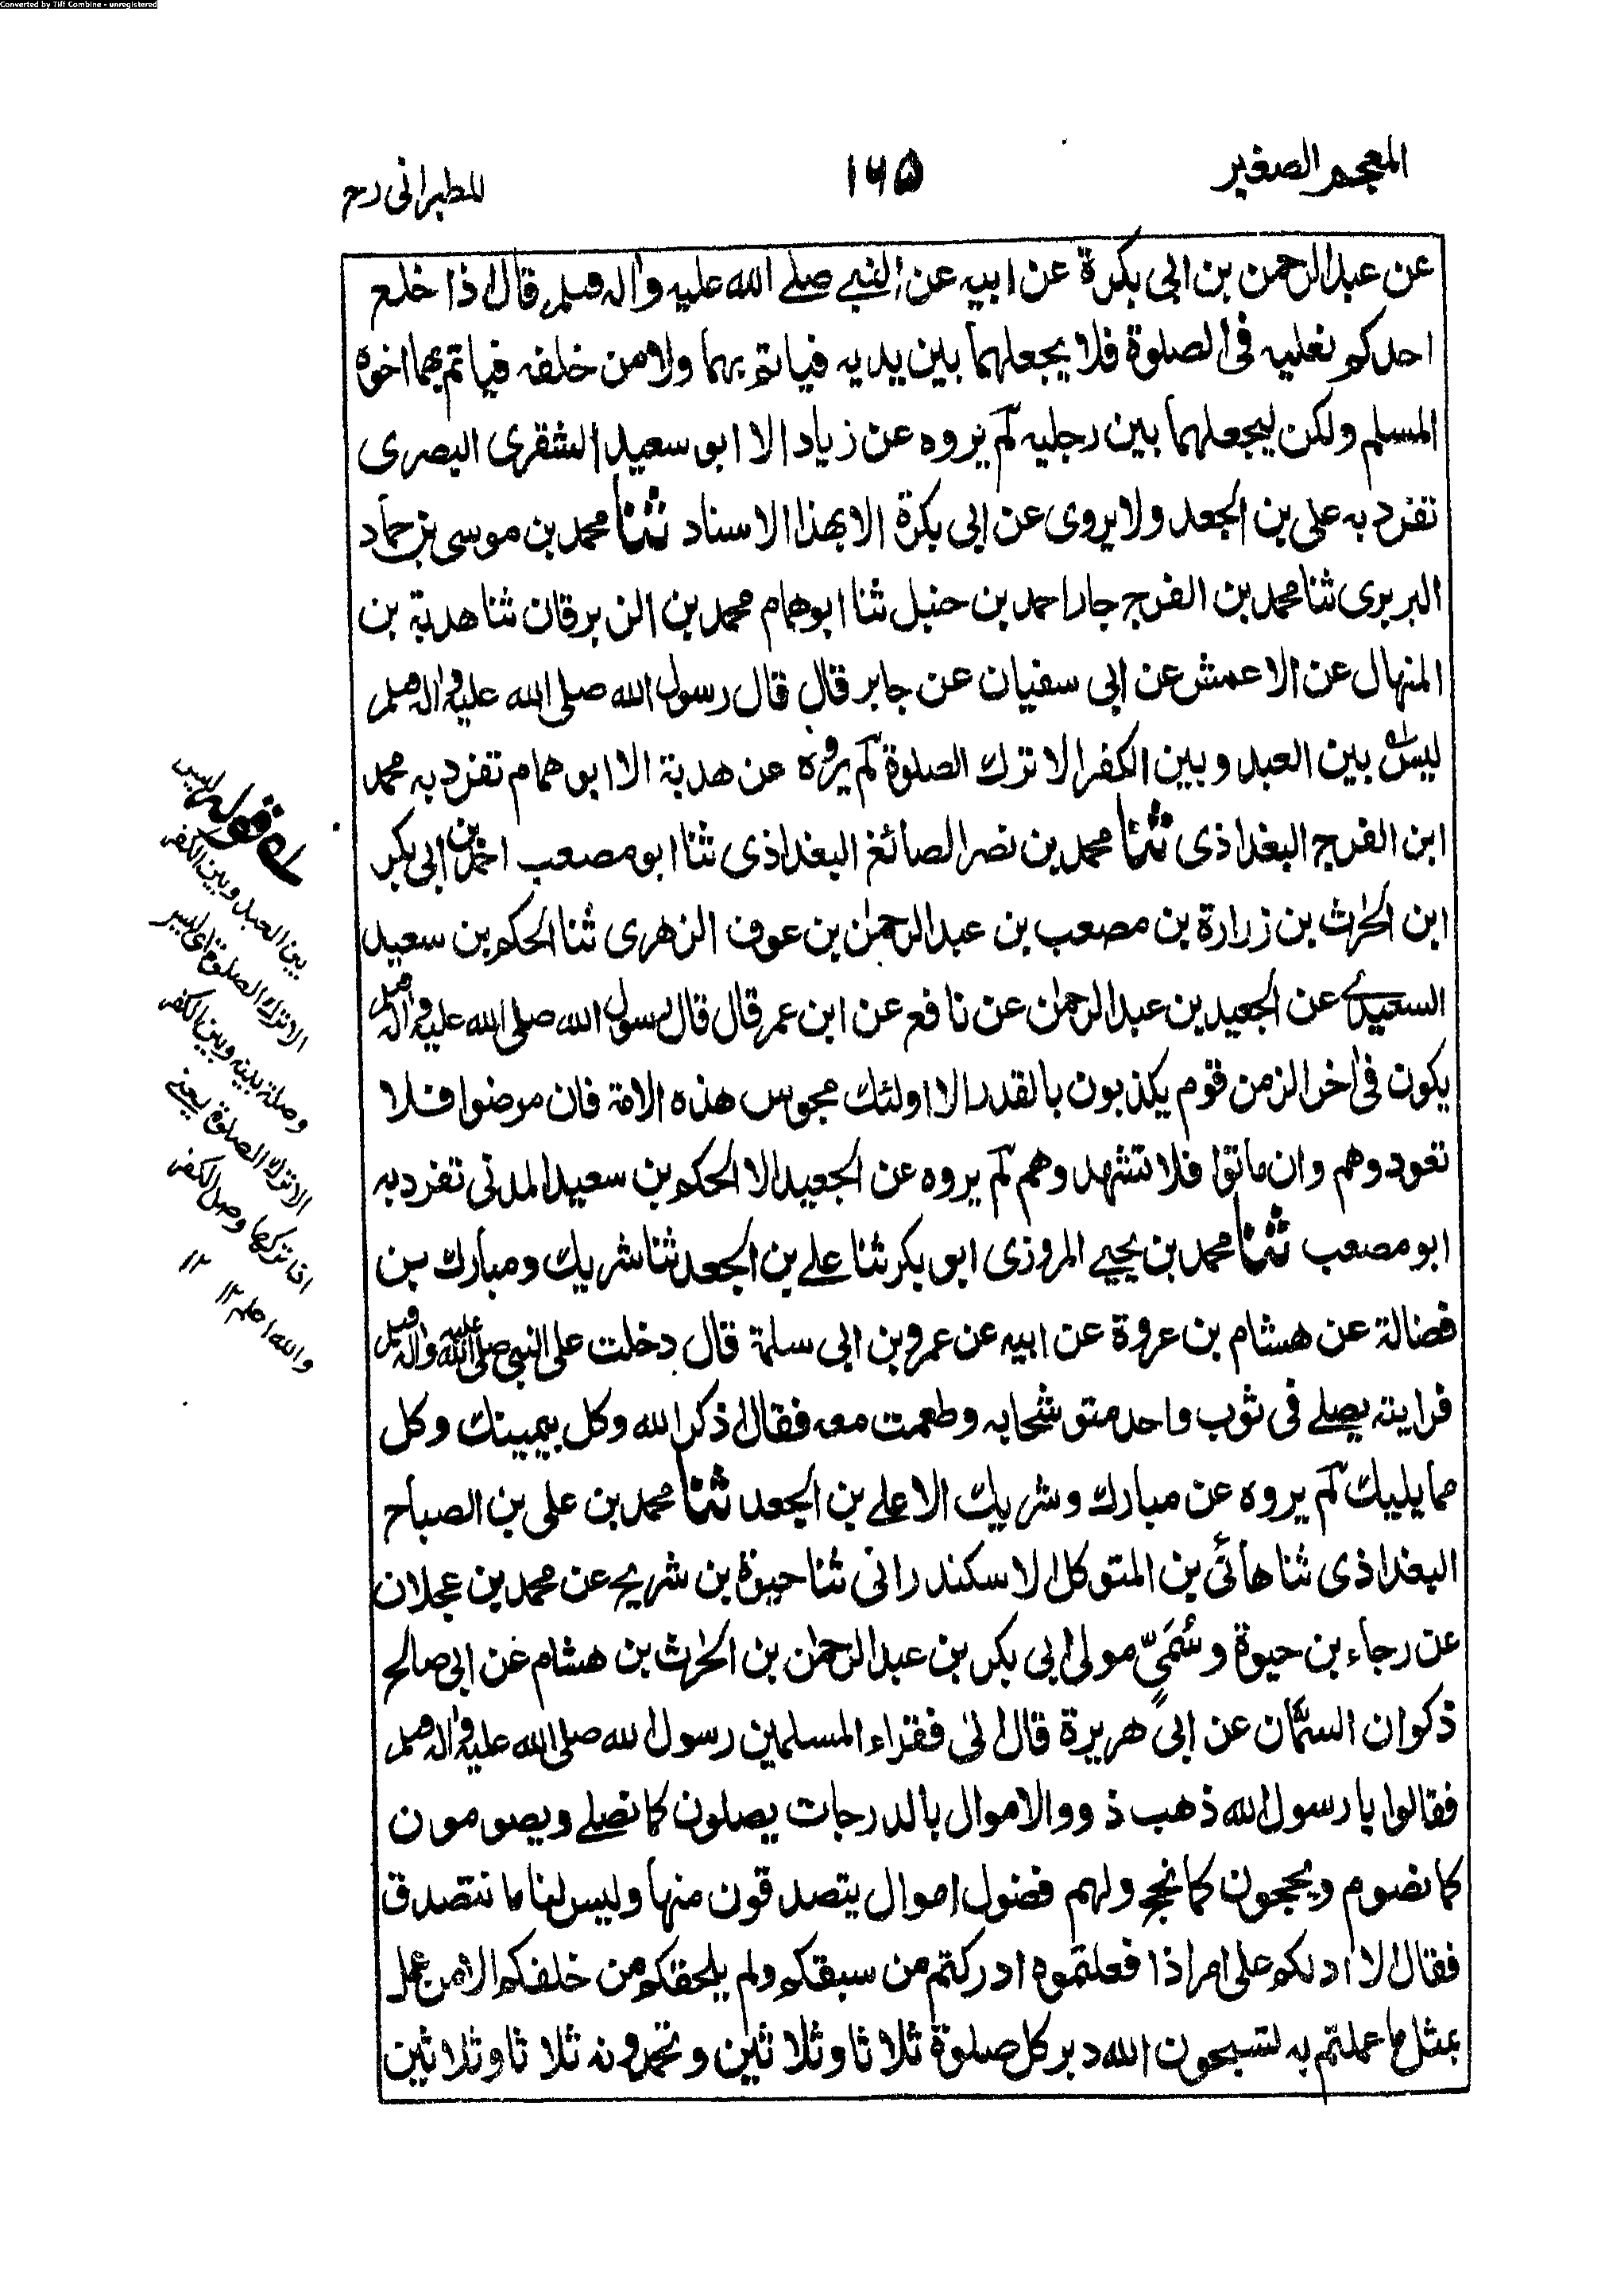 Converted by Tiff Combine - unregistered
المعجم الصغير
۱۶۵
للطبرانى رح
عن عبد الرحمن بن ابى بكرة عن ابيه عن النبي صلے الله عليه واٰله وسلم قال اذا خلع
احدكم نعليه فى الصلوة فلا يجعلهما بين يديه فياتم بهما ولا من خلفه فياتم بهما اخوه
المسلم ولكن ليجعلهما بين رجليه لم يروه عن زياد الا ابو سعيد الشقرى البصرى
تفرد به على بن الجعد ولا يروى عن ابى بكرة الا بهذا الاسناد ثنا محمد بن موسى بن حماد
البربرى ثنا محمد بن الفرج جار احمد بن حنبل ثنا ابو همام محمد بن الزبرقان ثنا هدبة بن
المنهال عن الاعمش عن ابى سفيان عن جابر قال قال رسول الله صلى الله عليه واٰله وسلم
ليس بين العبد وبين الكفر الا ترك الصلوة لم يروه عن هدبة الا ابو همام تفرد به محمد
ابن الفرج البغداذى ثنا محمد بن نصر الصائغ البغداذى ثنا ابو مصعب احمد بن ابى بكر
ابن الحٰرث بن زرارة بن مصعب بن عبد الرحمٰن بن عوف الزهرى ثنا الحكم بن سعيد
السعيدے عن الجعيد بن عبد الرحمٰن عن نافع عن ابن عمر قال قال رسول الله صلى الله عليه واٰله وسلم
يكون فى اٰخر الزمن قوم يكذبون بالقدر الا اولئك مجوس هذه الامة فان مرضوا فلا
تعودوهم وان ماتوا فلا تشهدوهم لم يروه عن الجعيد الا الحكم بن سعيد المدنى تفرد به
ابو مصعب ثنا محمد بن يحيے المروزى ابو بكر ثنا علے بن الجعد ثنا شريك ومبارك بن
فضالة عن هشام بن عروة عن ابيه عن عمرو بن ابى سلمة قال دخلت على النبى صلى الله عليه واٰله وسلم
فرايته يصلے فى ثوب واحد متوشحا به وطعمت معه فقال اذكر الله وكل بيمينك وكل
مما يليك لم يروه عن مبارك وشريك الا علے بن الجعد ثنا محمد بن على بن الصباح
البغداذى ثنا هانئ بن المتوكل الاسكندرانى ثنا حيوة بن شريح عن محمد بن عجلان
عن رجاء بن حيوة وسُمَيّ مولى ابى بكر بن عبد الرحمٰن بن الحٰرث بن هشام عن ابى صالح
ذكوان السمّان عن ابى هريرة قال اتى فقراء المسلمين رسول الله صلى الله عليه واٰله وسلم
فقالوا يا رسول الله ذهب ذووالاموال بالدرجات يصلون كما نصلے ويصومون
كما نصوم ويحجون كما نحج ولهم فضول اموال يتصدقون منها وليس لنا ما نتصدق
فقال الا ادلكم على امر اذا فعلتموه ادركتم من سبقكم ولم يلحقكم من خلفكم الا من عمل
بمثل ما عملتم به تسبحون الله دبر كل صلوة ثلاثا وثلاثين وتحمدونه ثلاثا وثلاثين
لـه قوله ليس
بين العبد وبين الكفر
الا ترك الصلوة اى ليس
وصلة بينه وبين الكفر
الا ترك الصلوة يعنے
اذا تركها وصل الكفر
والله اعلم ۱۲ ۱۲